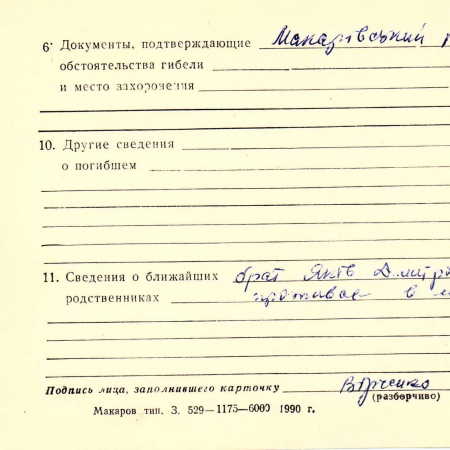 6· Документы, подтверждающие Макарівський
обстоятельства гибели
и место захоронения
10. Другие сведения
о погибшем
11. Сведения о ближайших брат Яків Дмитро
родственниках проживає в м
Подпись лица, заполнившего карточку
(разборчиво)
Макаров тип. З. 529—1175—6000 1990 г.